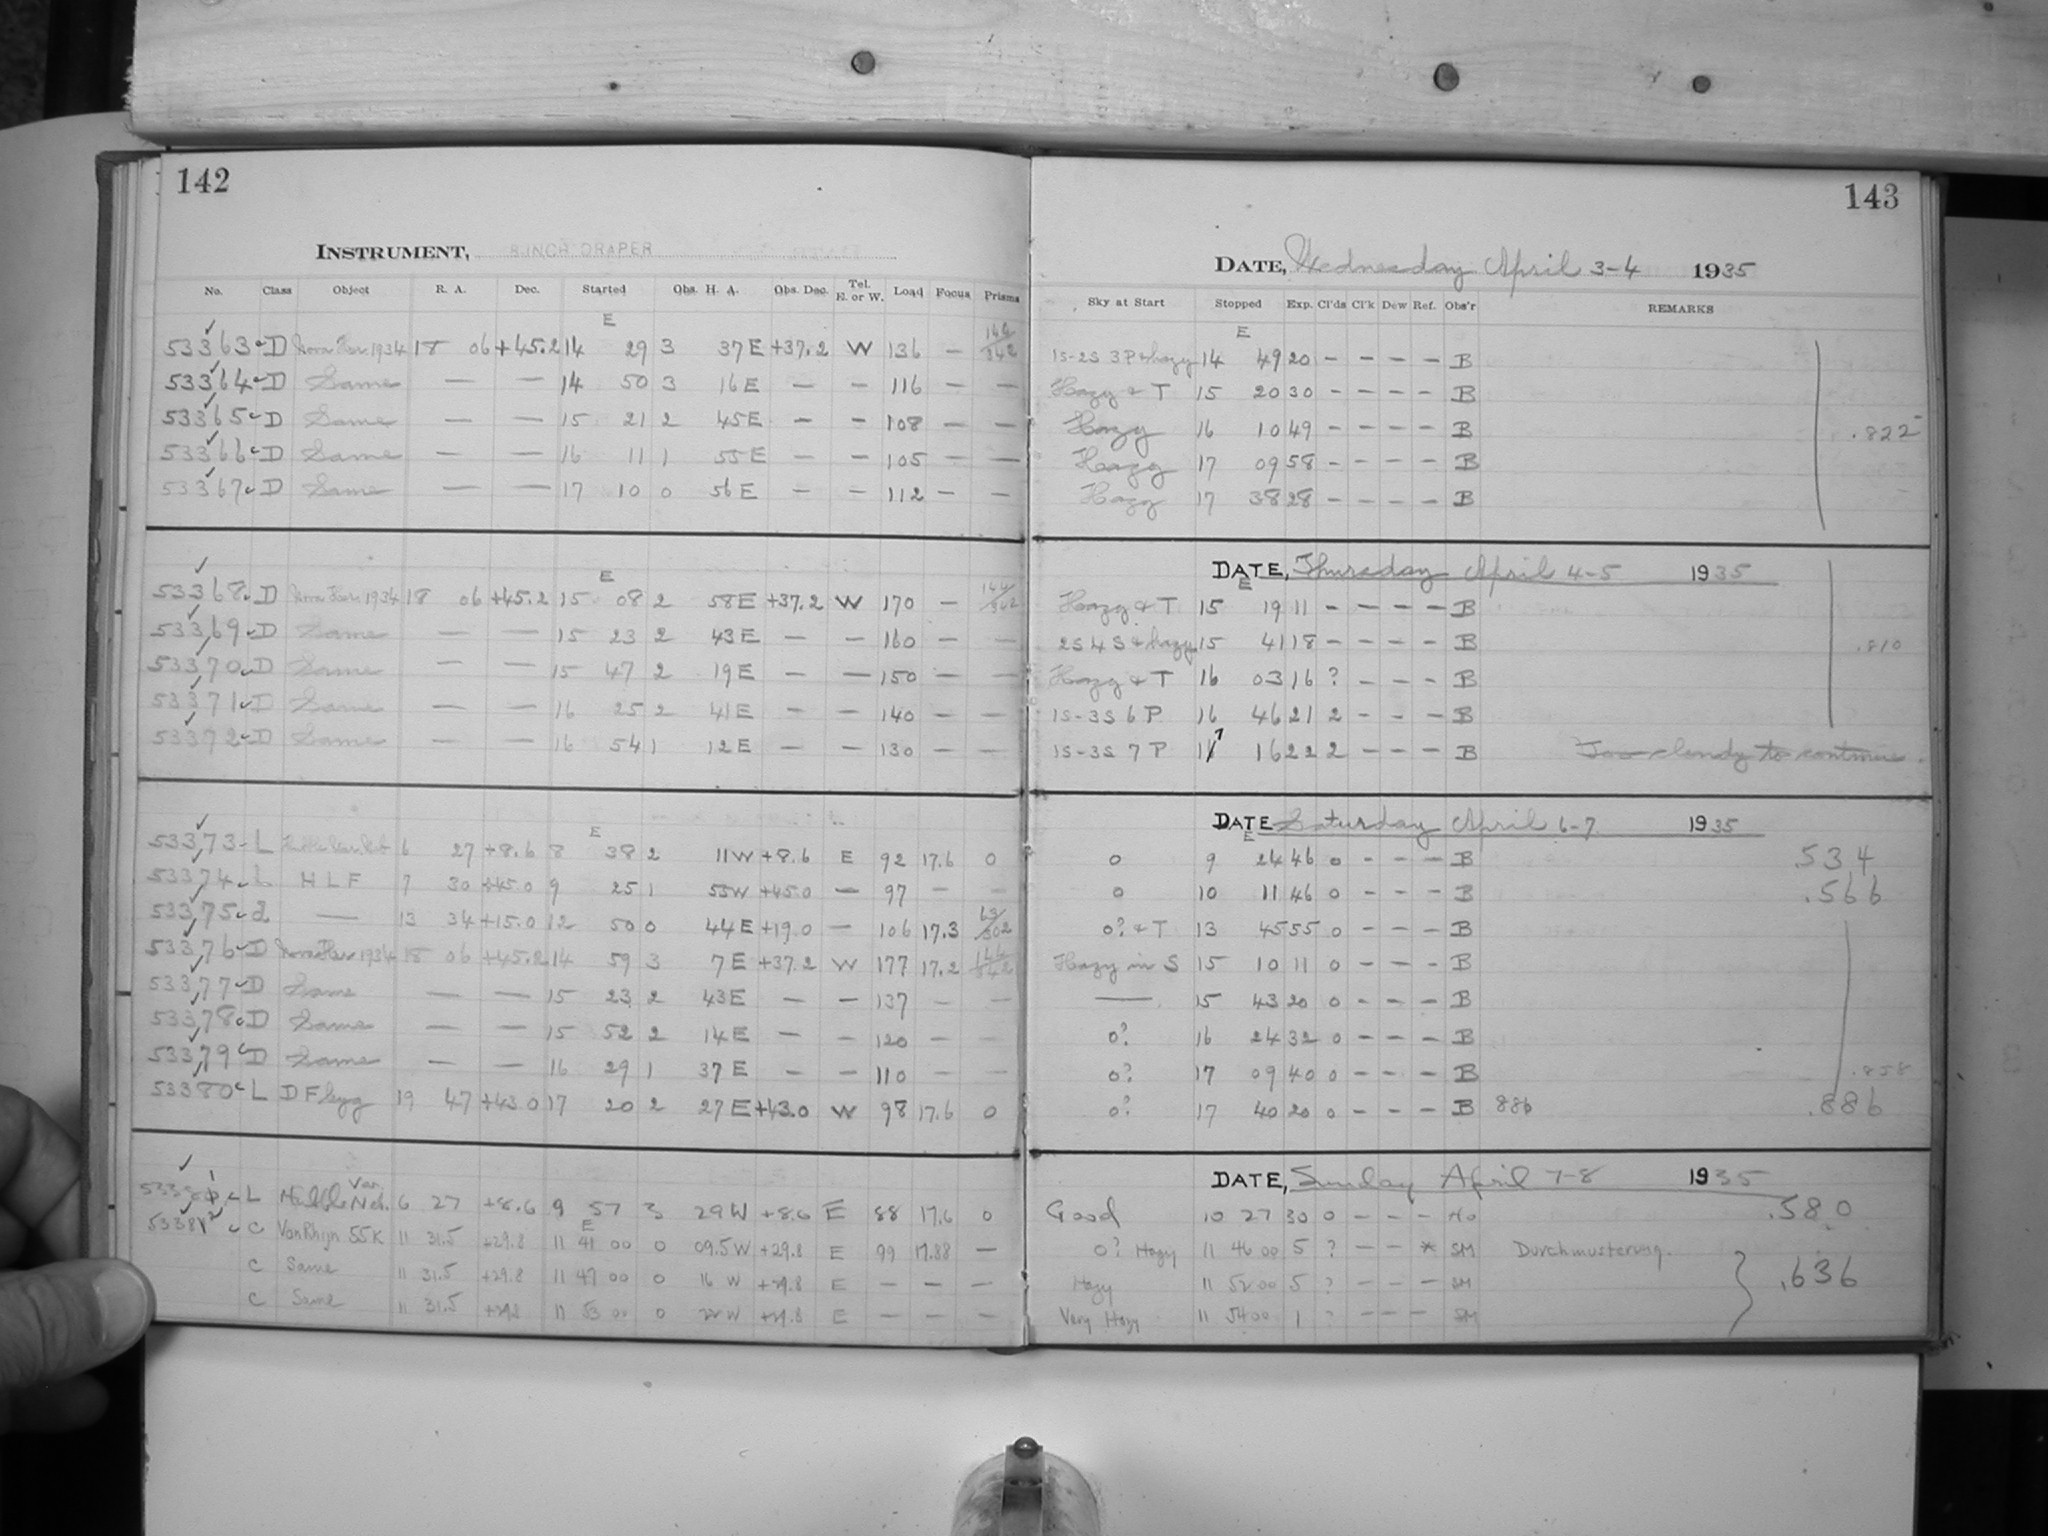 142
INSTRUMENT, 8 INCH DRAPER
No. Class Object R. A. Dec. Started Obs. H. A. Obs. Dec. Tel. E. or W. Load Focus Prisms
E
53363 D Nova Her 1934 18 06 +45.2 14 29 3 37 E +37.2 W 136 — 144/342
53364 D Same — — 14 50 3 16 E — — 116 — —
53365 D Same — — 15 21 2 45 E — — 108 — —
53366 D Same — — 16 11 1 55 E — — 105 — —
53367 D Same — — 17 10 0 56 E — — 112 — —
E
53368 D Nova Her 1934 18 06 +45.2 15 08 2 58 E +37.2 W 170 — 144/342
53369 D Same — — 15 23 2 43 E — — 160 — —
53370 D Same — — 15 47 2 19 E — — 150 — —
53371 D Same — — 16 25 2 41 E — — 140 — —
53372 D Same — — 16 54 1 12 E — — 130 — —
E
53373 L 6 27 +8.6 8 38 2 11 W +8.6 E 92 17.6 0
53374 L H L F 7 30 +45.0 9 25 1 55 W +45.0 — 97 — —
53375 — 13 34 +15.0 12 50 0 44 E +19.0 — 106 17.3 63/302
53376 D Nova Her 1934 18 06 +45.2 14 59 3 7 E +37.2 W 177 17.2 144/342
53377 D Same — — 15 23 2 43 E — — 137 — —
53378 D Same — — 15 52 2 14 E — — 120 — —
53379 D Same — — 16 29 1 37 E — — 110 — —
53380 L D F Cyg 19 47 +43.0 17 20 2 27 E +43.0 W 98 17.6 0
53381 L Hubble Var. Neb. 6 27 +8.6 9 57 3 29 W +8.6 E 88 17.6 0
E
53382 C Van Rhijn 55K 11 31.5 +29.8 11 41 00 0 09.5 W +29.8 E 99 17.88 —
C Same 11 31.5 +29.8 11 47 00 0 16 W +29.8 E — — —
C Same 11 31.5 +29.8 11 53 00 0 22 W +29.8 E — — —
143
DATE, Wednesday April 3-4 1935
Sky at Start Stopped Exp. Cl'ds Cl'k Dew Ref. Obs'r REMARKS
E
1S-2S 3P & hazy 14 49 20 — — — — B
Hazy & T 15 20 30 — — — — B
Hazy 16 10 49 — — — — B .822
Hazy 17 09 58 — — — — B
Hazy 17 38 28 — — — — B
DATE, Thursday April 4-5 1935
E
Hazy & T 15 19 11 — — — — B
2S 4 S & hazy 15 41 18 — — — — B .810
Hazy & T 16 03 16 ? — — — B
1S-3S 6 P 16 46 21 2 — — — B
1S-3S 7 P 17 16 22 2 — — — B Too cloudy to continue.
DATE Saturday April 6-7 1935
E
0 9 24 46 0 — — — B .534
0 10 11 46 0 — — — B .566
0? & T 13 45 55 0 — — — B
Hazy in S 15 10 11 0 — — — B
— 15 43 20 0 — — — B
0? 16 24 32 0 — — — B
0? 17 09 40 0 — — — B .858
0? 17 40 20 0 — — — B 886 .886
DATE, Sunday April 7-8 1935
Good 10 27 30 0 — — — Ho .580
0? Hazy 11 46 00 5 ? — — * SM Durchmusterung.
Hazy 11 52 00 5 ? — — — SM .636
Very Hazy 11 54 00 1 ? — — — SM